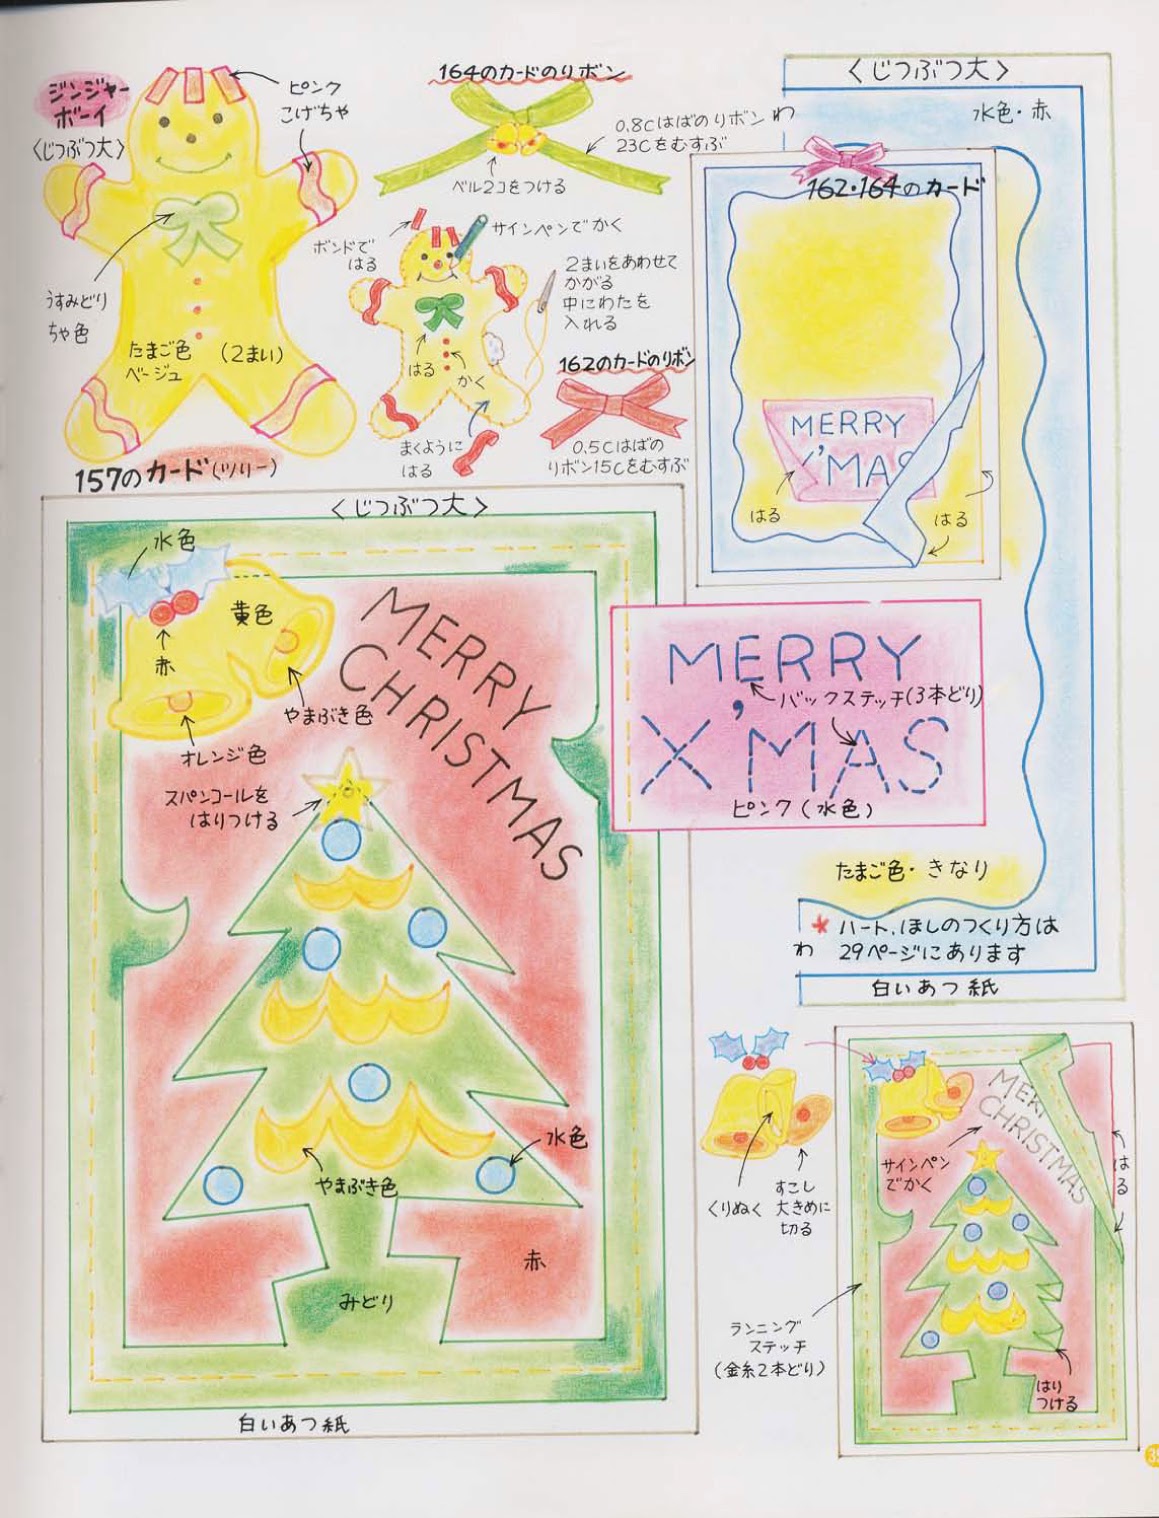 ジンジャー
ボーイ
〈じつぶつ大〉
ピンク
こげちゃ
うすみどり
ちゃ色
たまご色
ベージュ
(2まい)
164のカードのリボン
0.8Cはばのリボン
23Cをむすぶ
ベル2コをつける
ボンドで
はる
サインペンでかく
2まいをあわせて
かがる
中にわたを
入れる
はる
かく
まくように
はる
162のカードのリボン
0.5Cはばの
リボン15Cをむすぶ
〈じつぶつ大〉
わ
水色・赤
162・164のカード
MERRY
X'MAS
はる
はる
MERRY
X'MAS
バックステッチ(3本どり)
ピンク(水色)
たまご色・きなり
わ
* ハート、ほしのつくり方は
29ページにあります
白いあつ紙
157のカード(ツリー)
〈じつぶつ大〉
水色
黄色
赤
やまぶき色
オレンジ色
MERRY
CHRISTMAS
スパンコールを
はりつける
水色
やまぶき色
赤
みどり
白いあつ紙
くりぬく
すこし
大きめに
切る
MERR
CHRISTMAS
サインペン
でかく
はる
ランニング
ステッチ
(金糸2本どり)
はり
つける